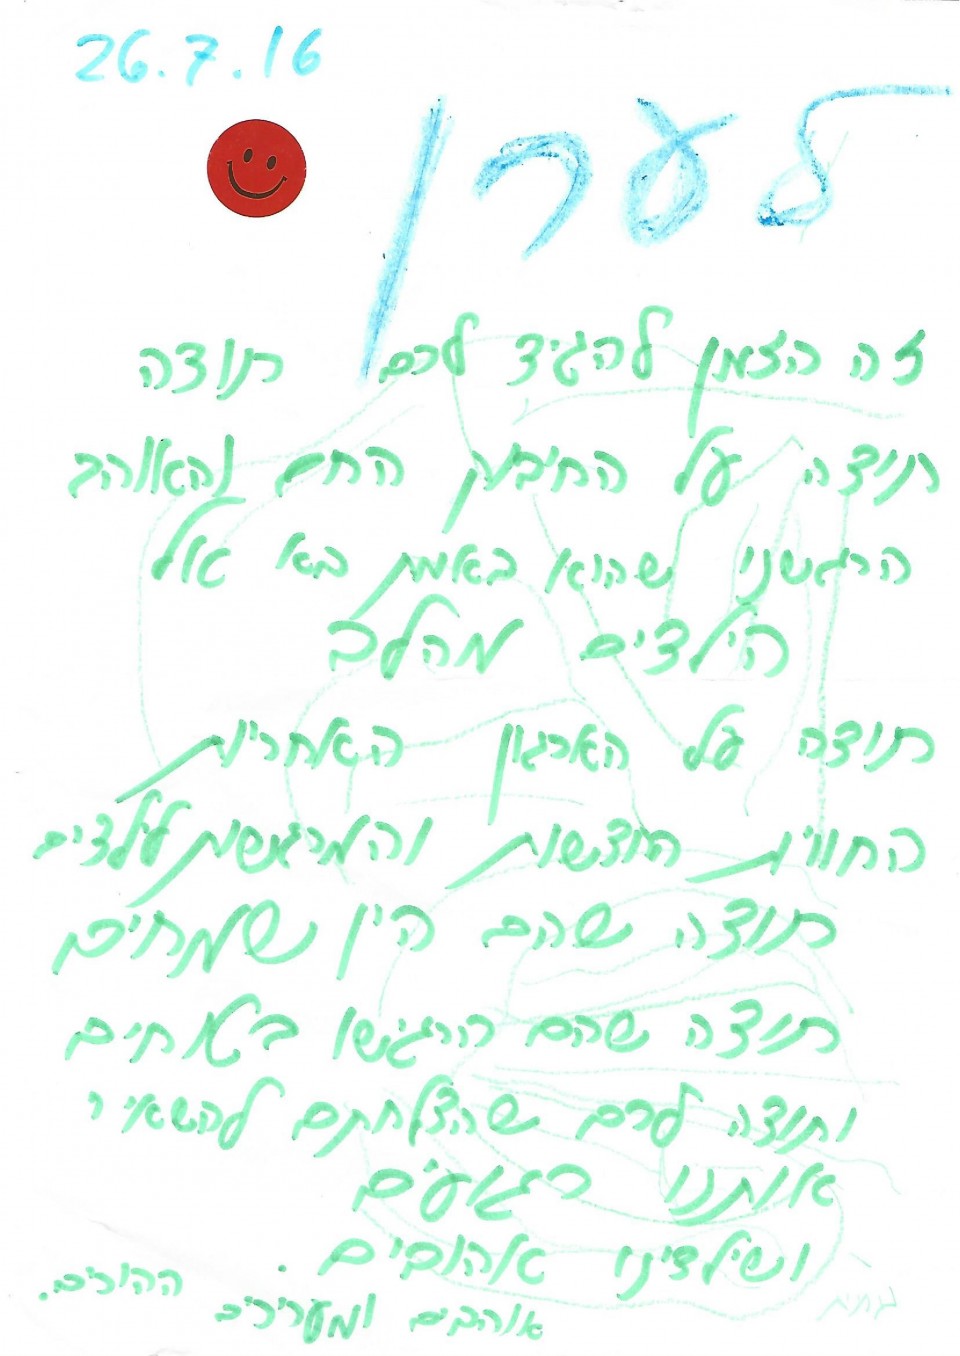 26.7.16
לערן
זה הזמן להגיד לכם תודה
תודה על החיבוק החם והאוהב
הרגשנו שהוא באמת בא אל
הילדים מהלב
תודה על הארגון האחריות
החוויות חודשות והמרגשות לילדים
תודה שהם היו שמחים
תודה שהם הרגישו בטוחים
ותודה לכם שהצלחתם להשאיר
אותנו רגועים
ושילדינו אהובים.
אוהבים ומעריכים ההורים.